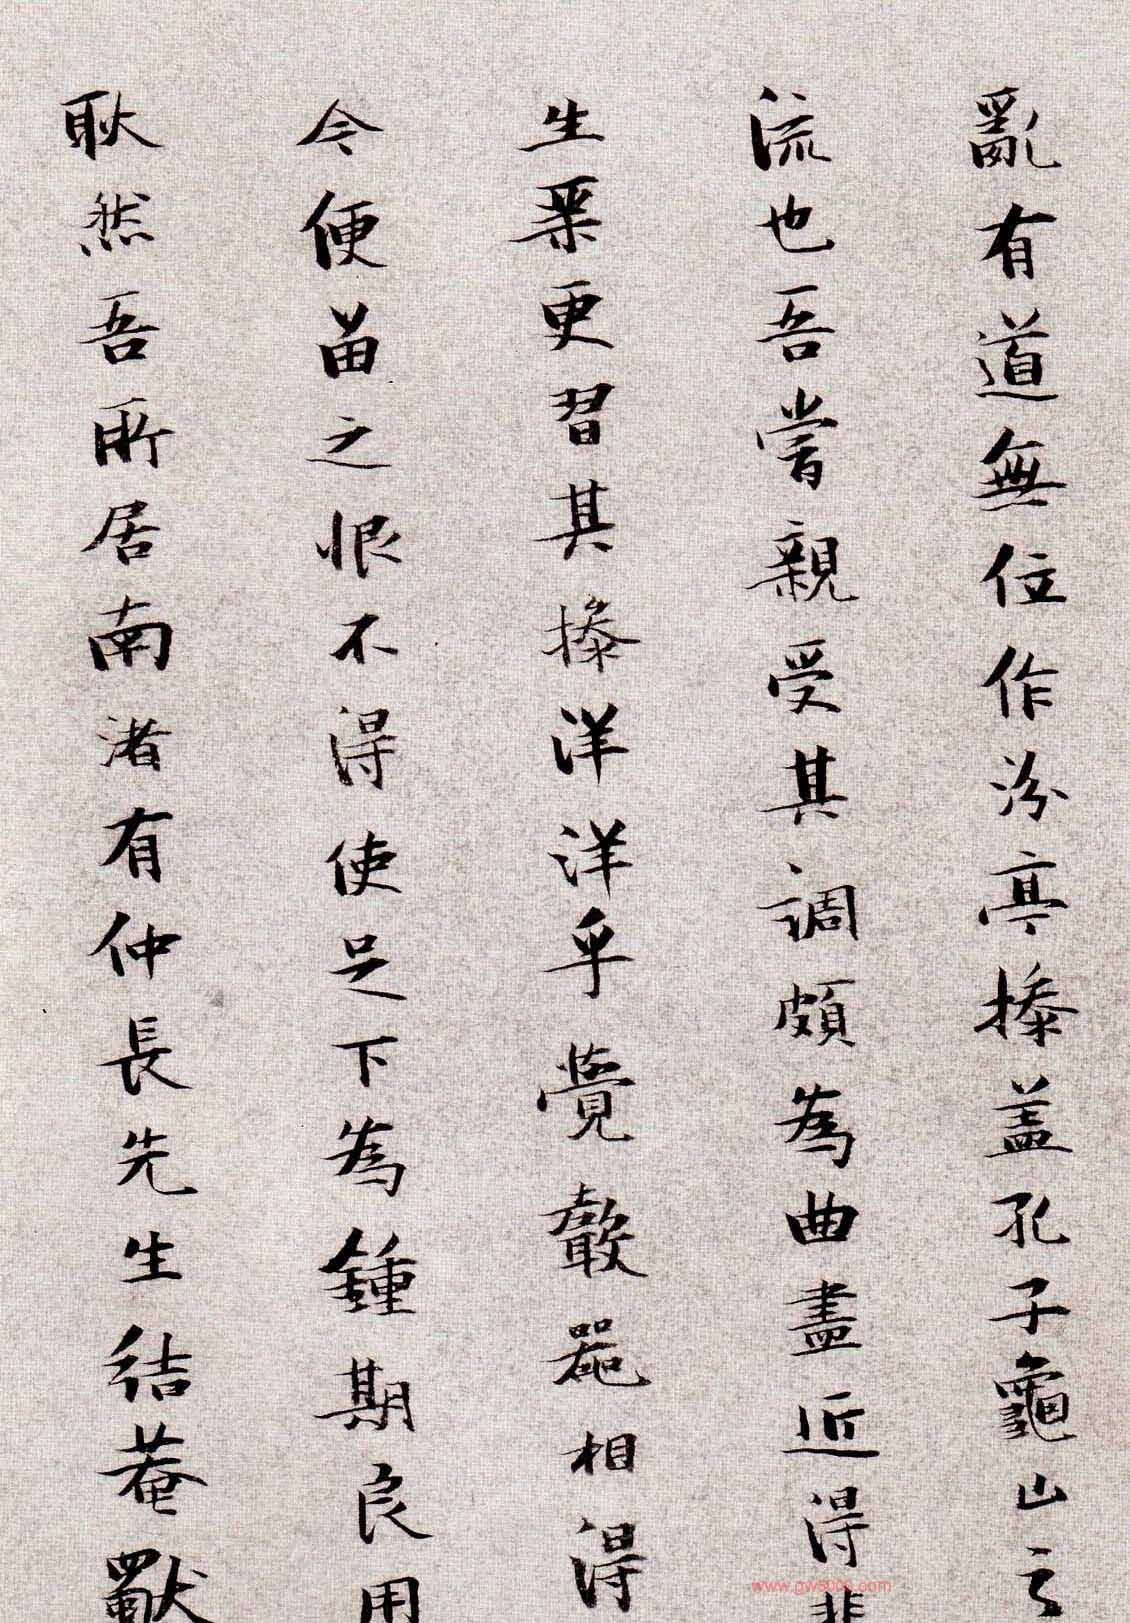 亂有道無位作汾亭捧盖孔子龜山之
流也吾嘗親受其調頗為曲盡近得
生業更習其捧洋洋乎覺聲器相得
今便留之恨不得使足下為鍾期良用
耿然吾所居南渚有仲長先生結菴獨
www.gw3000.com